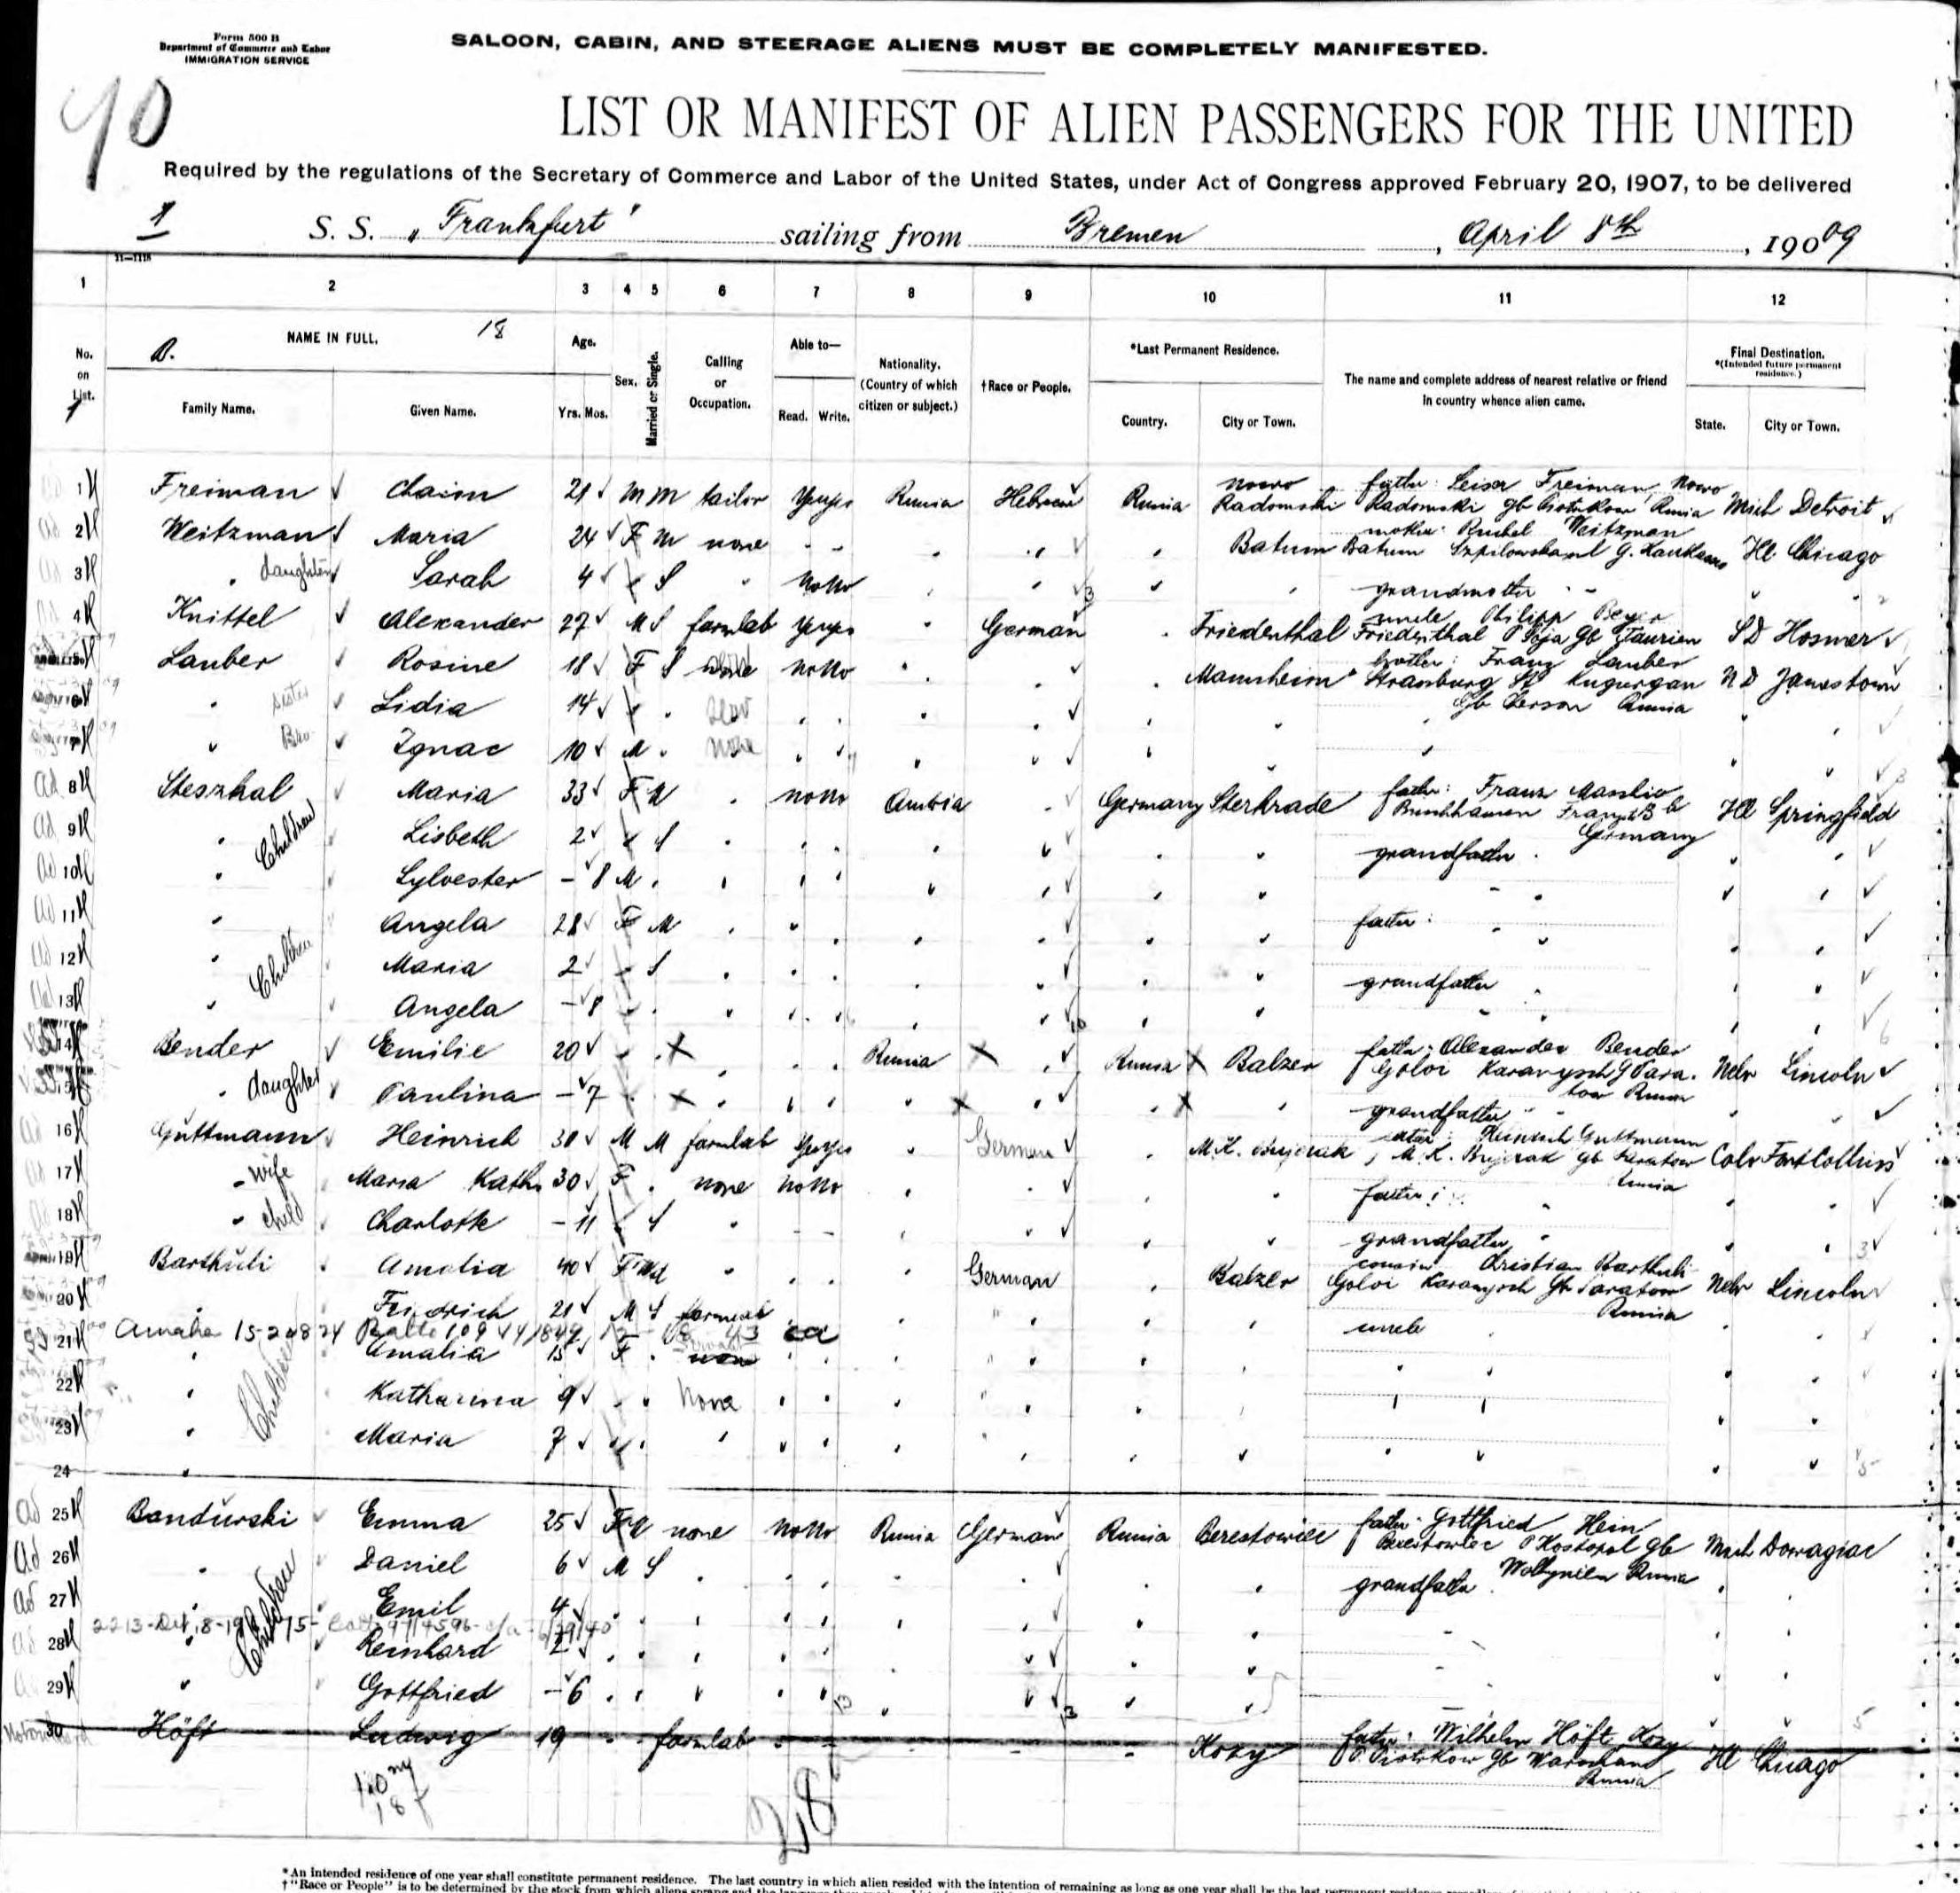 Form 500 B
Department of Commerce and Labor
IMMIGRATION SERVICE
SALOON, CABIN, AND STEERAGE ALIENS MUST BE COMPLETELY MANIFESTED.
40
LIST OR MANIFEST OF ALIEN PASSENGERS FOR THE UNITED
Required by the regulations of the Secretary of Commerce and Labor of the United States, under Act of Congress approved February 20, 1907, to be delivered
1 S. S. „Frankfurt" sailing from Bremen, April 8th, 1909
1 2 3 4 5 6 7 8 9 10 11 12
No. on List.
NAME IN FULL. 18
Family Name. Given Name.
Age. Yrs. Mos.
Sex.
Married or Single.
Calling or Occupation.
Able to— Read. Write.
Nationality. (Country of which citizen or subject.)
†Race or People.
*Last Permanent Residence. Country. City or Town.
The name and complete address of nearest relative or friend in country whence alien came.
Final Destination. *(Intended future permanent residence.) State. City or Town.
1 Freiman Chaim 21 M M tailor yes yes Russia Hebrew Russia Nowo Radomski father: Leiser Freiman, Nowo Radomski gb Piotrkow Russia Mich Detroit
2 Weitzman Maria 24 F M none Batum mother: Ruchel Weitzman Batum Ill Chicago
3 " daughter Sarah 4 S " no no grandmother
4 Knittel Alexander 27 M S farmlab yes yes " German Friedenthal uncle Philipp Beyer Friedenthal gb Taurien S D Hosmer
5 Lauber Rosine 18 F S no no Mannheim brother: Franz Lauber Strassburg Gb Cherson Russia N D Jamestown
6 " sister Lidia 14
7 " Bro Ignac 10 M none
8 Steszhal Maria 33 F M no no Austria Germany Sterkrade father: Franz Germany Ill Springfield
9 " Children Lisbeth 2 S grandfather
10 " Sylvester – 8 M
11 " Angela 28 F M father:
12 " Children Maria 2 S grandfather
13 " Angela – 8
14 Bender Emilie 20 X Russia X Russia X Balzer father: Alexander Bender Goloi Karamysch Saratow Russia Nebr Lincoln
15 " daughter Paulina – 7 X X X grandfather
16 Guttmann Heinrich 30 M M farmlab yes yes " German father: Heinrich Guttmann gb Saratow Russia Colo Fort Collins
17 " wife Maria Kath. 30 F none no no father:
18 " child Charlotte – 11 S grandfather
19 Barthuli Amalia 40 F Wd " German Balzer cousin Christian Barthuli Goloi Karamysch Gb Saratow Russia Nebr Lincoln
20 " Friedrich 21 M S farmlab uncle
Omaha 15-2
21 " Children Amalia 15 F
22 " Katharina 9 none
23 " Maria 7
24
25 Bandurski Emma 25 F M none no no Russia German Russia Berestowiec father: Gottfried Hein Berestowiec Kostopol gb Wolhynien Russia Mich Dowagiac
26 " Children Daniel 6 M S grandfather
27 " Emil 4
28 " Reinhard 2
29 " Gottfried – 6
30 Höft Ludwig 19 farmlab Kozy father: Wilhelm Höft Kozy Piotrkow gb Warschau Russia Ill Chicago
10 m
18 f
28
*An intended residence of one year shall constitute permanent residence. The last country in which alien resided with the intention of remaining as long as one year shall be the last permanent residence
†"Race or People" is to be determined by the stock from which aliens sprang and the language they